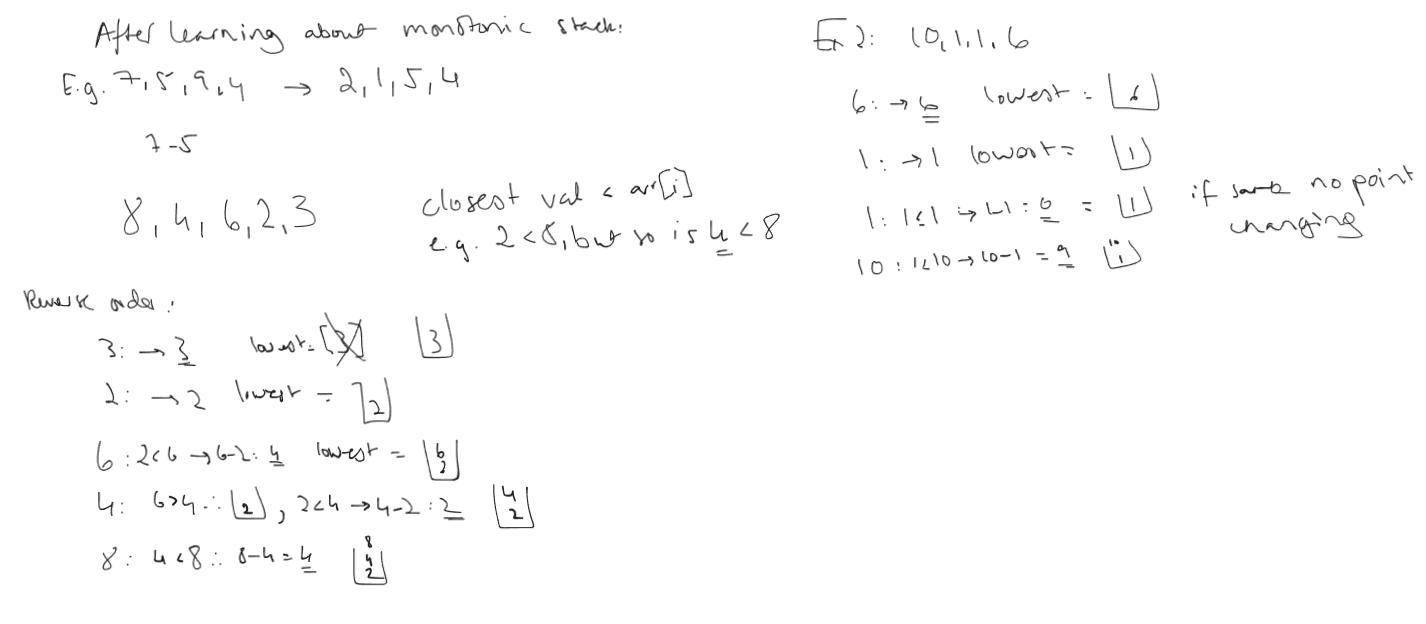 After learning about monotonic stack:
E.g. 7,5,9,4 → 2,1,5,4
7-5
8,4,6,2,3
closest val < arr[i]
e.g. 2<8, but so is 4 < 8
Reverse order:
3: → 3 lowest = [3] 3
2: → 2 lowest = 2
6: 2<6 → 6-2: 4 lowest = 6 2
4: 6>4 ∴ 2, 2<4 → 4-2: 2 4 2
8: 4<8 ∴ 8-4=4 8 4 2
Ex 2: 10,1,1,6
6: → 6 lowest = 6
1: → 1 lowest = 1
1: 1≤1 → 1-1: 0 = 1 if same no point
changing
10: 1≤10 → 10-1 = 9 10 1